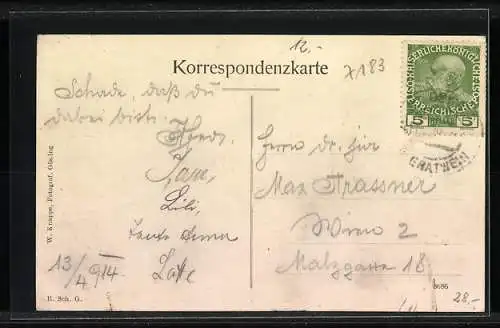 12.-
Korrespondenzkarte
7183
KAISERLICHE KÖNIGLICHE
ÖSTERREICHISCHE POST
5 5
GRATWEIN
Schade, daß du
dabei bist.
Lili,
Tante Anna
13/4 914
Herrn Dr. jur
Max Strassner
Wien 2
Malzgasse 18
W. Knappe, Fotograf, Gösting
R. Sch. G.
8686
28.-